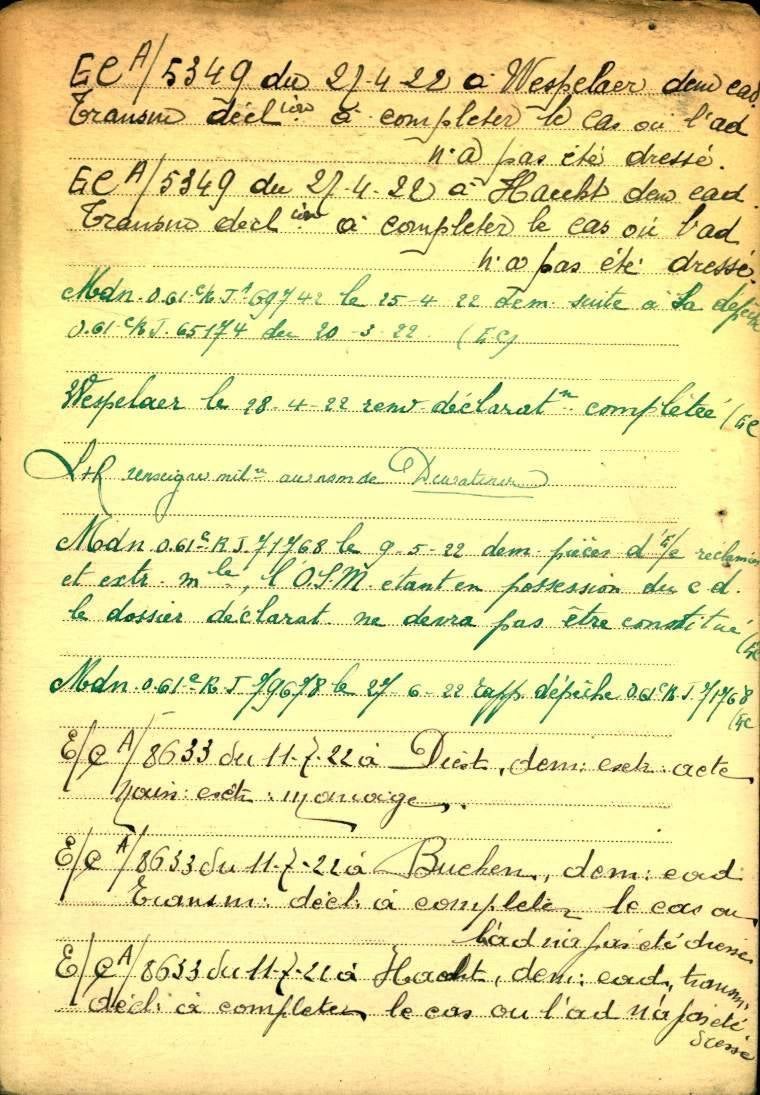 EC A/5349 du 27-4-22 à Wespelaer dem ead.
Transm décl ion à completer le cas où l'ad
n'a pas été dressé.
EC A/5349 du 27-4-22 à Haecht dem ead.
Transm décl ion à completer le cas où l'ad
n'a pas été dressé.
Mdn. 0.61 c/R J n 69742 le 25-4-22 dem. suite à sa dépêche
0.61 c/R J. 65174 du 20-3-22 (EC)
Wespelaer le 28-4-22 renv. déclarat n complétée (EC
L+R renseigne mil re au nom de
Mdn 0.61 c R J. 71768 le 9-5-22 dem. pièces d'E/C réclamées
et extr. m le, l'O.S.M. étant en possession du c d.
le dossier déclarat. ne devra pas être constitué (EC
Mdn. 0.61 c R J 79678 le 27-6-22 rapp. dépêche 0.61 c R J. 71768
(EC
E/C A/8633 du 11-7-22 à Diest, dem: extr: acte
Nais: extr: mariage.
E/C A/8633 du 11-7-22 à Bucken, dem: ead:
Transm: décl: à completer le cas ou
l'ad n'a pas été dressé
E/C A/8633 du 11-7-22 à Haecht, dem: ead, transm:
décl: à completer le cas ou l'ad n'a pas été
dressé